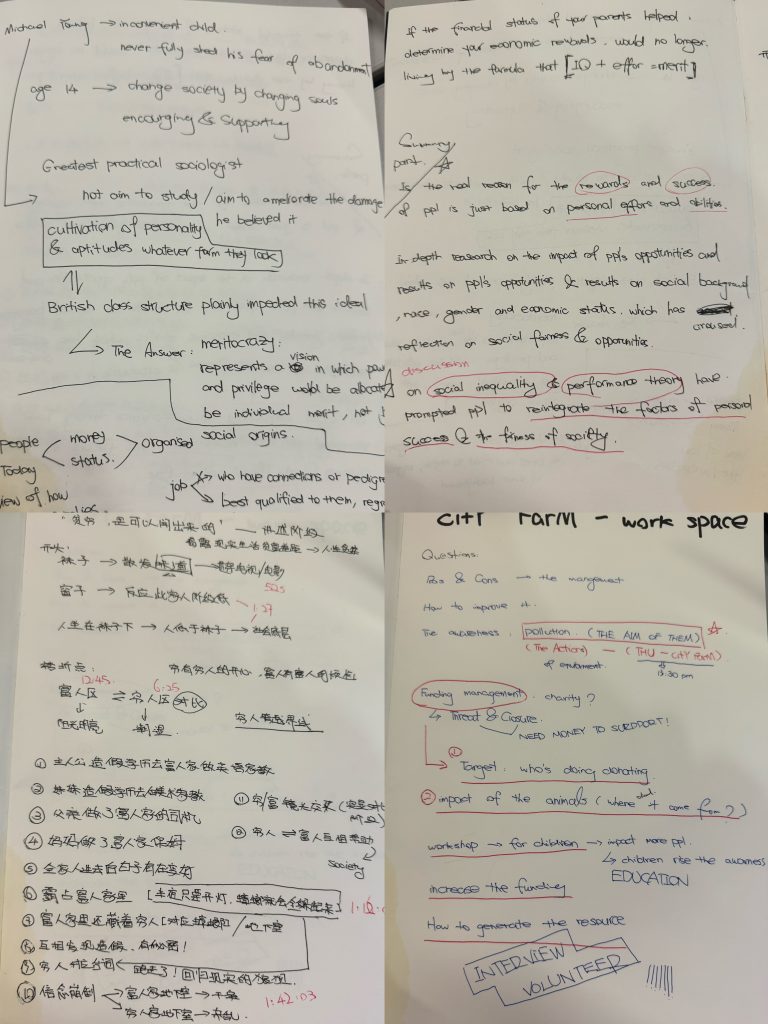 Michael Young → inconvenient child.
never fully shed his fear of abandonment
age 14 → change society by changing souls
encourging & supporting
Greatest practical sociologist
not aim to study / aim to ameliorate the damage
he believed it
cultivation of personality
& aptitudes whatever form they took
British class structure plainly impeded this ideal
The Answer: meritocrazy:
represents a vision in which pow
and privilege would be allocate
be individual merit, not
social origins.
people
Today
view of how
money
status.
organised
job
who have connections or pedigre
best qualified to them, regar
If the financial status of your parents helped.
determine your economic rewards. would no longer.
living by the formula that [IQ + effor = merit]
Summary
part.
Is the real reason for the rewards and success.
of ppl is just based on personal effors and abilities.
In-depth reasearch on the impact of ppl's oppotunities and
results or ppl's oppotunities & results on social backgroud
, race, gender and economic status. which has
aroused.
reflection on social fairness & opportunities.
discussion
on social inequality & performance theory have.
prompted ppl to reintegrate the factors of personal
success & the firness of society.
是可以闻出来的"
开头:
袜子 →
→ 看电视/电影
525
窗子 → 反应此穷人阶级低
1:27
人坐在袜子下 → 人低于袜子 → 社会底层
转折点:
穷有穷人的开心,富人有富人的烦恼
12:45.
6:25
富人区 ⇌ 穷人区 对比
阳光明亮
潮湿
① 主人公造假学历去富人家做英语家教
② 妹妹造假学历去做美术家教
③ 父亲做了富人家的司机
④ 妈妈做了富人家保姆
⑤
⑥ 霸占富人家里
1:18:0
⑦ 富人家里还藏着穷人
/ 地下室
⑧ 互相发现造假,有秘密!
⑨ 穷人
跑走了! 回归现实的
⑩ 信念崩倒
富人家地下室 → 干净
穷人家地下室 → 杂乱
1:42:03
⑪ 穷/富 镜头交叉
⑫ 穷人 ⇌ 富人互相帮助
society
CITY FARM - work space
Questions.
Pros & Cons → the mangement
How to improve it.
The awareness: pollution. (THE AIM OF THEM)
(The Actions) — (THU - CITY FARM)
of enviroment
13:30 pm
Funding management. charity?
Threat & Closure.
NEED MONEY TO SURPPORT!
① Target: who's doing donating
② impact of the animals (where did it come from?)
workshop → for children → impact more ppl.
children rise the awarness
EDUCATION
increase the funding
How to generate the resource
INTERVIEW
VOLUNTEER